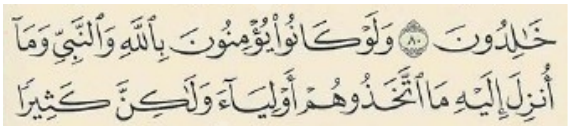 خَٰلِدُونَ ۝٨٠ وَلَوْ كَانُوا۟ يُؤْمِنُونَ بِٱللَّهِ وَٱلنَّبِىِّ وَمَآ
أُنزِلَ إِلَيْهِ مَا ٱتَّخَذُوهُمْ أَوْلِيَآءَ وَلَٰكِنَّ كَثِيرًا